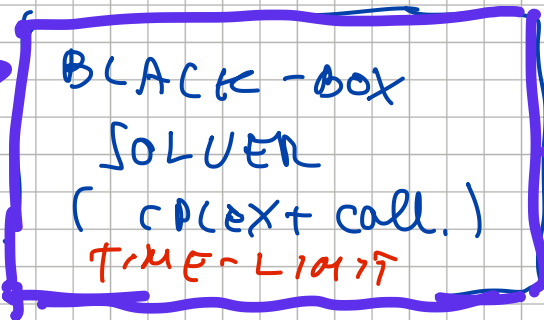 BLACK-BOX
SOLVER
( CPLEX + call. )
TIME-LIMIT